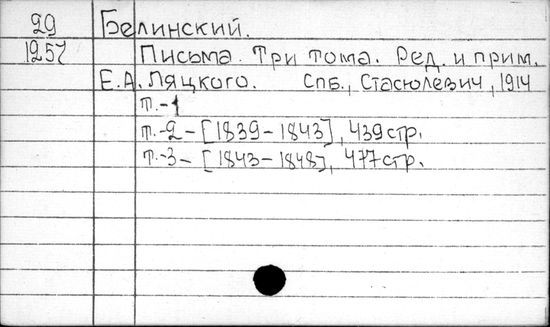 29 Белинский.
1257 Письма. Три тома. Ред. и прим.
Е.А. Ляцкого. Спб., Стасюлевич, 1914
т.-1
т.-2 - [1839-1843], 439 стр.
т.-3 - [1843-1848], 477 стр.